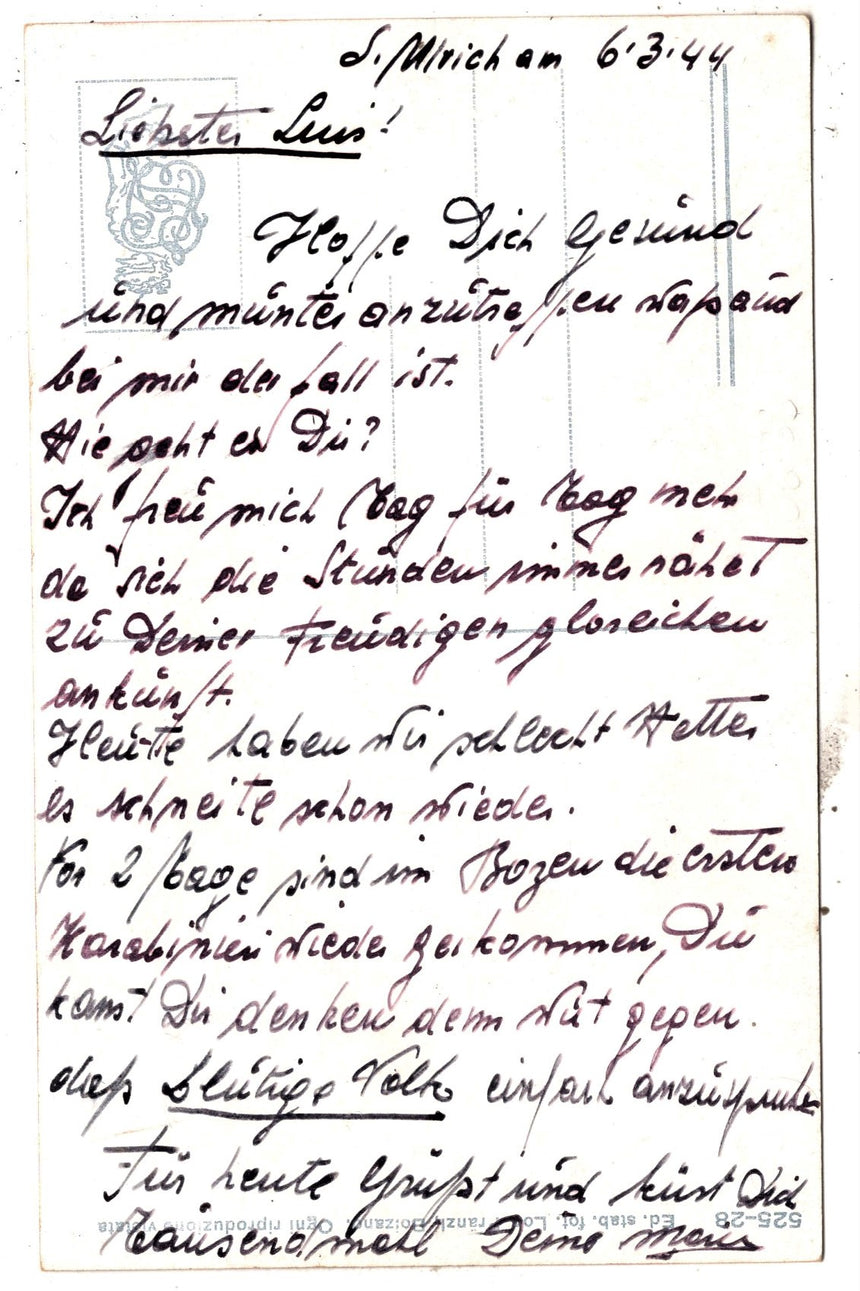 S. Ulrich am 6.3.44
Liebster Luis!
Hoffe Dich Gesund
und munter anzutreffen waß aud
bei mir der fall ist.
Wie geht es Dir?
Ich freu mich Tag für Tag mehr
da sich die Stunden immer nähert
zu Deiner Freudigen gloreichen
ankunft.
Heute haben wir schlecht Wetter
es schneite schon wieder.
Vor 2 Tage sind im Bozen die ersten
Karabinieri wieder gekommen, Du
kanst Dir denken denn Wut gegen.
daß Blutige Volk einfach
Für heute Grüßt und küst Dich
Tausendmahl Deine
525-28 Ed. stab. fot. Lor. Fränzl, Bolzano. Ogni riproduzione vietata